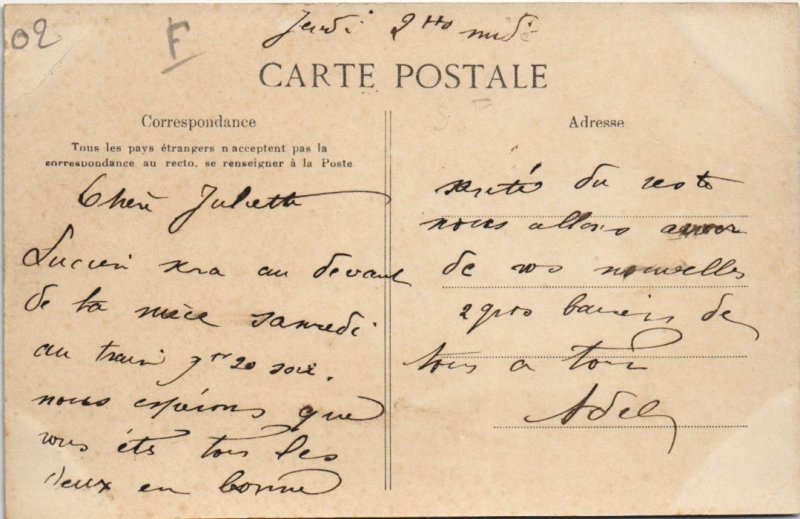 02
F
Jeudi 2 h midi
CARTE POSTALE
Correspondance
Tous les pays étrangers n'acceptent pas la
correspondance au recto, se renseigner à la Poste
Chère Juliette
Lucien sera au devant
de ta mère samedi
au train 7h 20 soir.
nous espérons que
vous êtes tous les
deux en bonne
Adresse
santé du reste
nous allons avoir
de vos nouvelles
2 gros baisers de
tous a tous
Adel